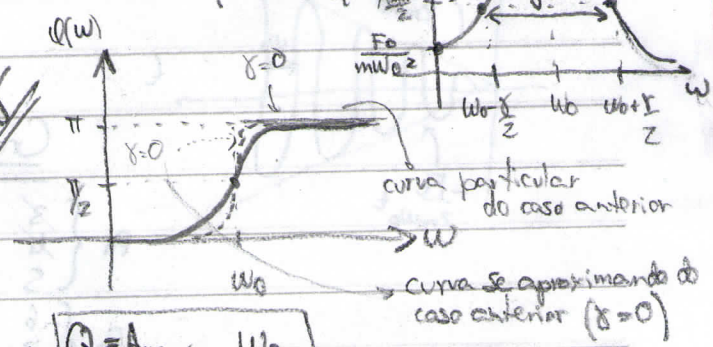 φ(ω)
γ=0
π
γ=0
π/2
ω
ω₀
F₀/mω₀²
ω₀-γ/2
ω₀
ω₀+γ/2
ω
curva particular
do caso anterior
curva se aproximando do
caso anterior (γ=0)